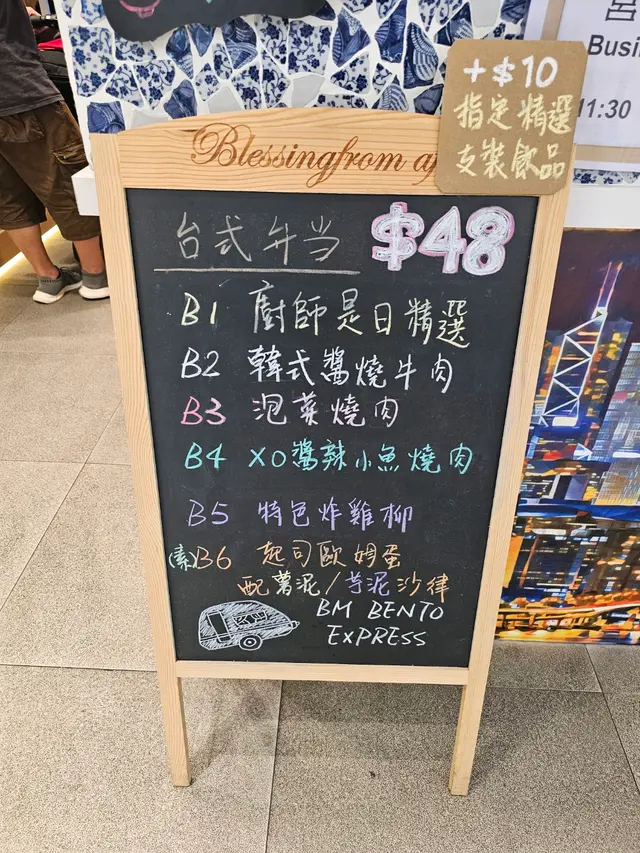 宮
Busi
11:30
+$10
指定精選
支裝飲品
Blessingfrom
台式弁当 $48
B1 廚師是日精選
B2 韓式醬燒牛肉
B3 泡菜燒肉
B4 XO醬辣小魚燒肉
B5 特色炸雞柳
(素)B6 起司歐姆蛋
配薯泥/芋泥沙律
BM BENTO
ExPRESS